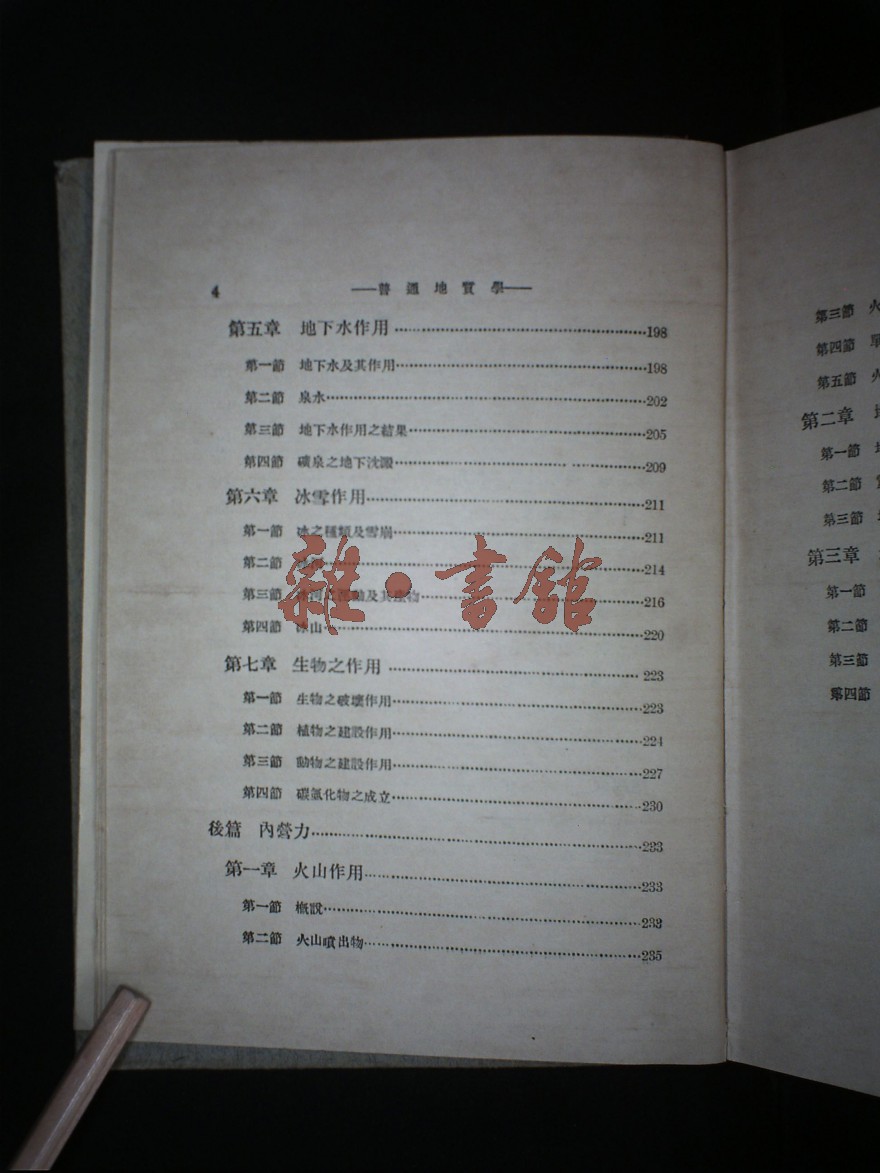 4 ——普通地質學——
第五章 地下水作用……198
第一節 地下水及其作用……198
第二節 泉水……202
第三節 地下水作用之結果……205
第四節 礦泉之地下沈澱……209
第六章 冰雪作用……211
第一節 冰之種類及雪崩……211
第二節 冰河……214
第三節 冰河之運動及其產物……216
第四節 冰山……220
第七章 生物之作用……223
第一節 生物之破壞作用……223
第二節 植物之建設作用……224
第三節 動物之建設作用……227
第四節 碳氫化物之成立……230
後篇 內營力……233
第一章 火山作用……233
第一節 概說……233
第二節 火山噴出物……235
雜·書館
第三節 火
第四節
第五節 火
第二章
第一節
第二節
第三節
第三章
第一節
第二節
第三節
第四節